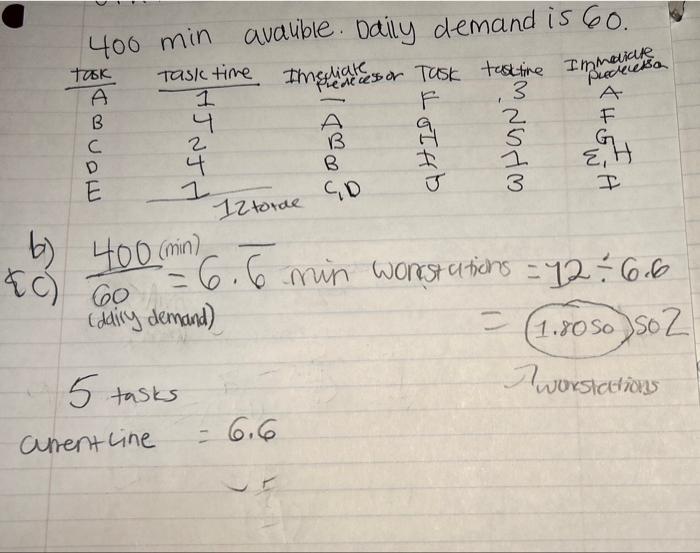 400 min avalible. Daily demand is 60.
Task Task time Immediate Predecessor Task task time Immediate predecessor
A 1 — F 3 A
B 4 A G 2 F
C 2 B H 5 G
D 4 B I 1 E, H
E 1 C, D J 3 I
12 total
b) 400 (min)
& c) 60 = 6.6 min workstations = 12 ÷ 6.6
(daily demand) = 1.80 so so 2
workstations
5 tasks
current line = 6.6